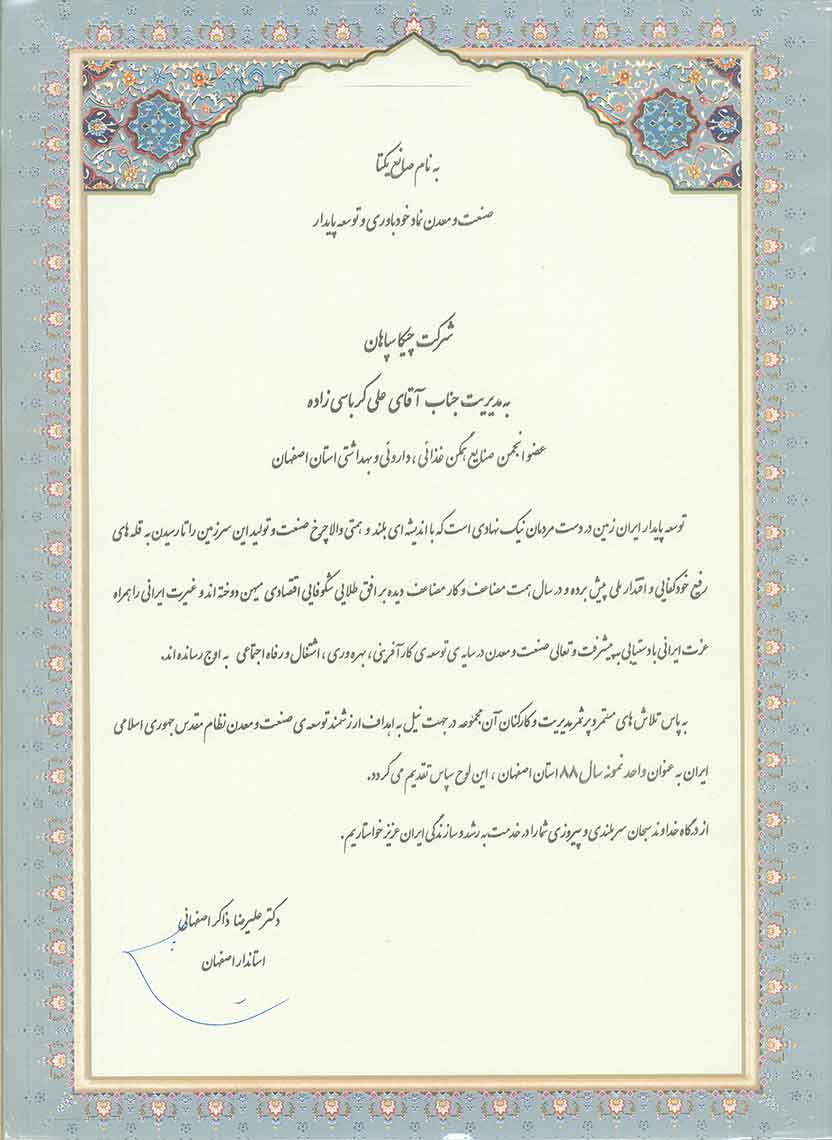 به نام صانع یکتا
صنعت و معدن نماد خودباوری و توسعه پایدار
شرکت چیکا سپاهان
به مدیریت جناب آقای علی کرباسی زاده
عضو انجمن صنایع همگن غذائی ، داروئی و بهداشتی استان اصفهان
توسعه پایدار ایران زمین در دست مردمان نیک نهادی است که با اندیشه ای بلند و همتی والا چرخ صنعت و تولید این سرزمین را تا رسیدن به قله های
رفیع خودکفایی و اقتدار ملی پیش برده و در سال همت مضاعف و کار مضاعف دیده بر افق طلایی شکوفایی اقتصادی میهن دوخته اند و غیرت ایرانی را همراه
عزت ایرانی با دستیابی به پیشرفت و تعالی صنعت و معدن در سایه ی توسعه ی کارآفرینی ، بهره وری ، اشتغال و رفاه اجتماعی به اوج رسانده اند.
به پاس تلاش های مستمر و پر ثمر مدیریت و کارکنان آن مجموعه در جهت نیل به اهداف ارزشمند توسعه ی صنعت و معدن نظام مقدس جمهوری اسلامی
ایران به عنوان واحد نمونه سال ۸۸ استان اصفهان ، این لوح سپاس تقدیم می گردد.
از درگاه خداوند سبحان سربلندی و پیروزی شما را در خدمت به رشد و سازندگی ایران عزیز خواستاریم.
دکتر علیرضا ذاکر اصفهانی
استاندار اصفهان